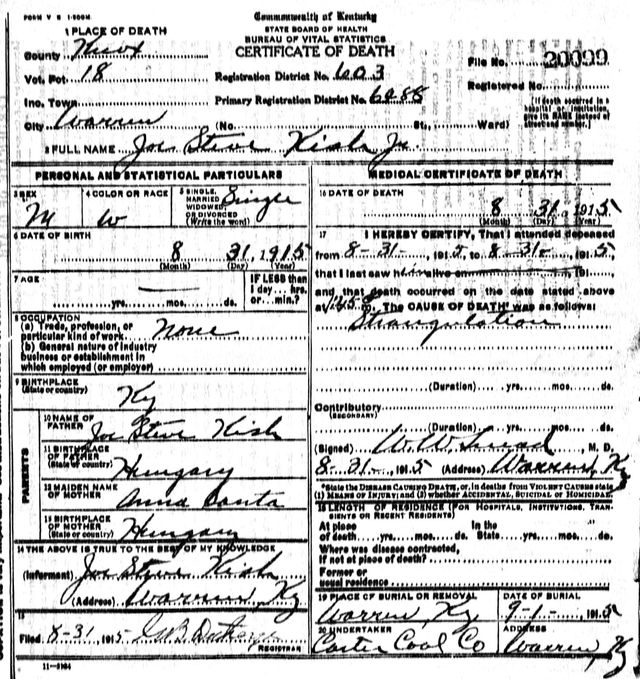 FORM V S 1-500M
Commonwealth of Kentucky
STATE BOARD OF HEALTH
BUREAU OF VITAL STATISTICS
CERTIFICATE OF DEATH
1 PLACE OF DEATH
County Knox
Vot. Pct 18
Inc. Town
City Warren (No. St., Ward)
Registration District No. 603
Primary Registration District No. 6088
File No. 20099
Registered No.
[If death occurred in a hospital or institution, give its NAME instead of street and number.]
2 FULL NAME Joe Steve Kish Jr.
PERSONAL AND STATISTICAL PARTICULARS
3 SEX M
4 COLOR OR RACE W
5 SINGLE, MARRIED WIDOWED OR DIVORCED (Write the word) Single
6 DATE OF BIRTH
8 31, 1915
(Month) (Day) (Year)
7 AGE
yrs. mos. ds.
IF LESS than 1 day, hrs. or min.?
8 OCCUPATION
(a) Trade, profession, or particular kind of work None
(b) General nature of Industry business or establishment in which employed (or employer)
9 BIRTHPLACE (State or country) Ky
PARENTS
10 NAME OF FATHER Joe Steve Kish
11 BIRTHPLACE OF FATHER (State or country) Hungary
12 MAIDEN NAME OF MOTHER Anna
13 BIRTHPLACE OF MOTHER (State or country) Hungary
14 THE ABOVE IS TRUE TO THE BEST OF MY KNOWLEDGE
(Informant) Joe Steve Kish
(Address) Warren, Ky
15
Filed 8-31 1915
REGISTRAR
11-3184
MEDICAL CERTIFICATE OF DEATH
16 DATE OF DEATH
8 31, 1915
(Month) (Day) (Year)
17 I HEREBY CERTIFY, That I attended deceased
from 8-31-, 1915, to 8-31-, 1915,
that I last saw him alive on , 191 ,
and that death occurred on the date stated above
at m. The CAUSE OF DEATH* was as follows:
Strangulation
(Duration) yrs. mos. ds.
Contributory
(SECONDARY)
(Duration) yrs. mos. ds.
(Signed) W. W. , M. D.
8-31-, 1915 (Address) Warren, Ky
*State the DISEASE CAUSING DEATH, or, in deaths from VIOLENT CAUSES state (1) MEANS OF INJURY; and (2) whether ACCIDENTAL, SUICIDAL OR HOMICIDAL.
18 LENGTH OF RESIDENCE (FOR HOSPITALS, INSTITUTIONS, TRANSIENTS OR RECENT RESIDENTS)
At place of death yrs. mos. ds. In the State yrs. mos. ds.
Where was disease contracted, if not at place of death?
Former or usual residence
19 PLACE OF BURIAL OR REMOVAL
Warren, Ky
DATE OF BURIAL
9-1-, 1915
20 UNDERTAKER
Carter Coal Co
ADDRESS
Warren, Ky